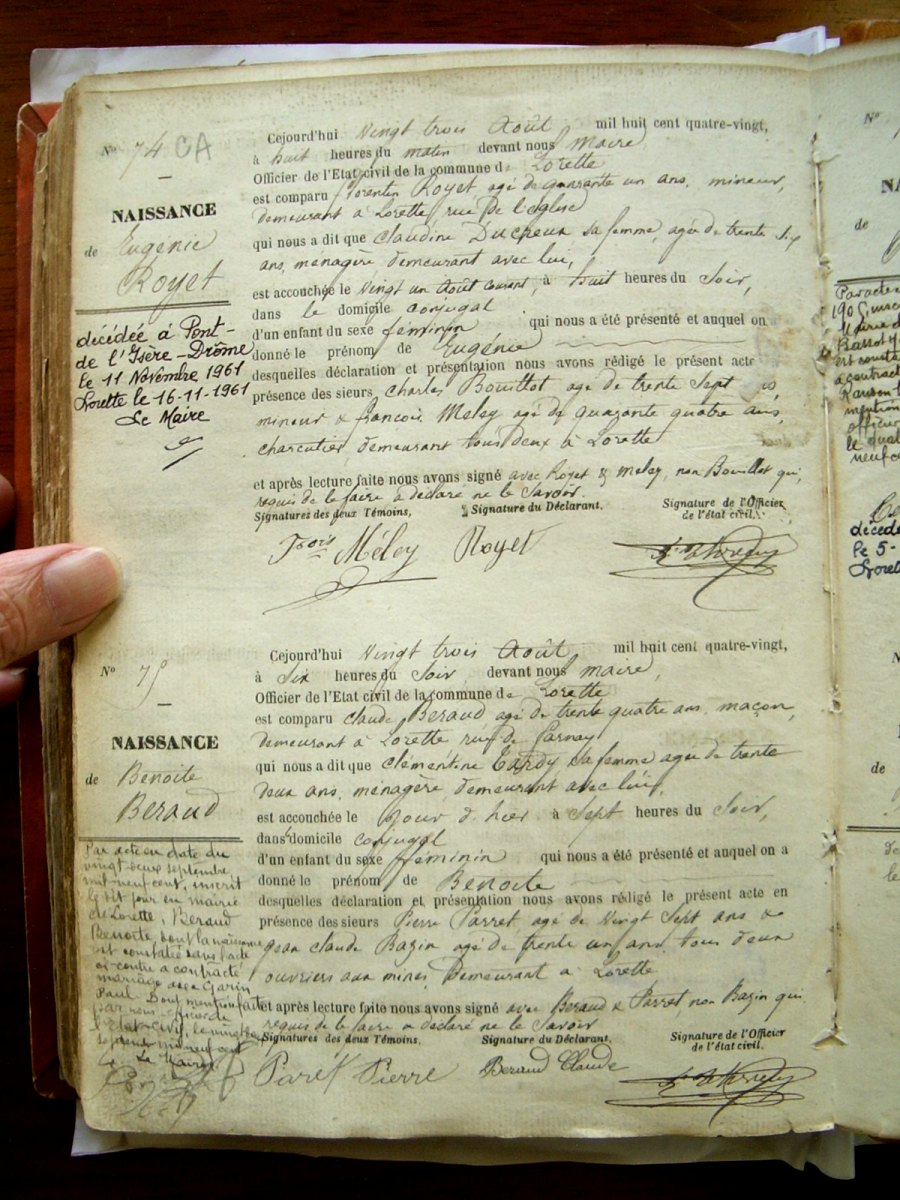 N° 74 CA
NAISSANCE
de Eugénie
Royet
décédée à Pont-
de l'Isère - Drôme
le 11 Novembre 1961
Lorette le 16-11-1961
Le Maire
Cejourd'hui Vingt trois Août mil huit cent quatre-vingt,
à huit heures du matin devant nous Maire
Officier de l'Etat civil de la commune de Lorette
est comparu florentin Royet agé de quarante un ans, mineur,
demeurant à Lorette rue De l'église
qui nous a dit que Claudine Ducreux sa femme, agée de trente six
ans, menagère demeurant avec lui,
est accouchée le Vingt un Août courant, à huit heures du Soir,
dans le domicile conjugal
d'un enfant du sexe féminin qui nous a été présenté et auquel on
donné le prénom de Eugénie
desquelles déclaration et présentation nous avons rédigé le présent acte
présence des sieurs Charles Bouillot agé de trente Sept
mineur & françois Meley agé de quarante quatre ans,
charcutier, demeurant tous deux à Lorette
et après lecture faite nous avons signé avec Royet & meley, non Bouillot qui,
requis de le faire a déclaré ne le Savoir.
Signatures des deux Témoins, Signature du Déclarant. Signature de l'Officier
de l'état civil.
Fçois Méley Royet
N° 75
NAISSANCE
de Benoite
Beraud
Par acte en date du
vingt-deux septembre
mil-neuf cent, inscrit
le dit jour en mairie
de Lorette, Beraud
Benoite, dont la naissance
est constatée dans l'acte
ci-contre a contracté
mariage avec Garin
Paul. Dont mention faite
par nous officier de
l'Etat-Civil, le vingt
septembre mil neuf cent
Le Maire
Cejourd'hui Vingt trois Août mil huit cent quatre-vingt,
à Six heures du Soir devant nous maire,
Officier de l'Etat civil de la commune de Lorette
est comparu Claude Beraud agé de trente quatre ans, maçon,
demeurant à Lorette rue de Farnay
qui nous a dit que Clémentine Tardy sa femme agée de trente
deux ans, ménagère, demeurant avec lui,
est accouchée le jour d'hier à Sept heures du Soir,
dans l' domicile conjugal
d'un enfant du sexe féminin qui nous a été présenté et auquel on a
donné le prénom de Benoite
desquelles déclaration et présentation nous avons rédigé le présent acte en
présence des sieurs Pierre Parret agé de Vingt Sept ans &
Jean Claude Bazin agé de trente un ans, tous deux
ouvriers aux mines, Demeurant à Lorette
et après lecture faite nous avons signé avec Beraud & Parret, non Bazin qui
requis de le faire a déclaré ne le Savoir
Signatures des deux Témoins, Signature du Déclarant. Signature de l'Officier
de l'état civil.
Parét Pierre Beraud Claude
N°
de
Par acte
le 5-
N
de